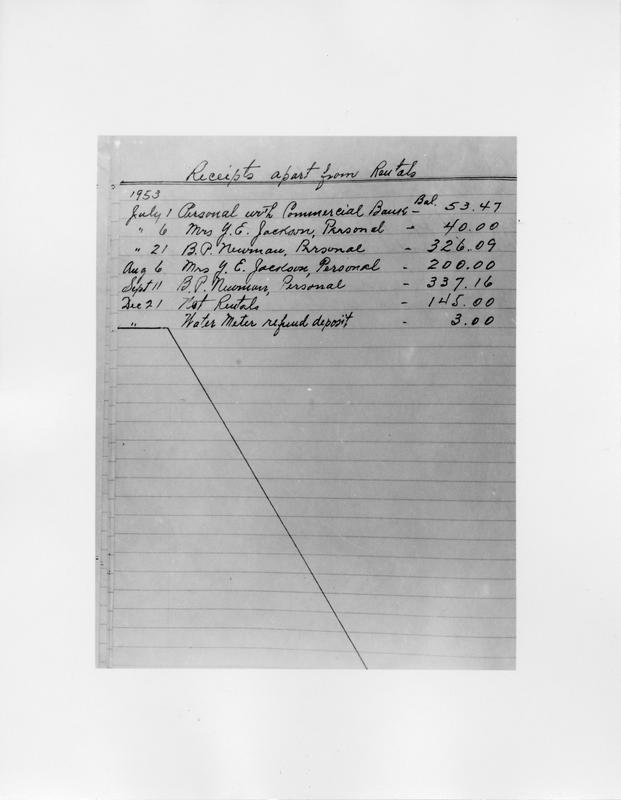 Receipts apart from Rentals
1953
July 1 Personal with Commercial Bank - Bal. 53.47
" 6 Mrs Y. E. Jackson, Personal - 40.00
" 21 B. P. Newman, Personal - 326.09
Aug 6 Mrs Y. E. Jackson, Personal - 200.00
Sept 11 B. P. Newman, Personal - 337.16
Dec 21 Net Rentals - 145.00
" Water Meter refund deposit - 3.00